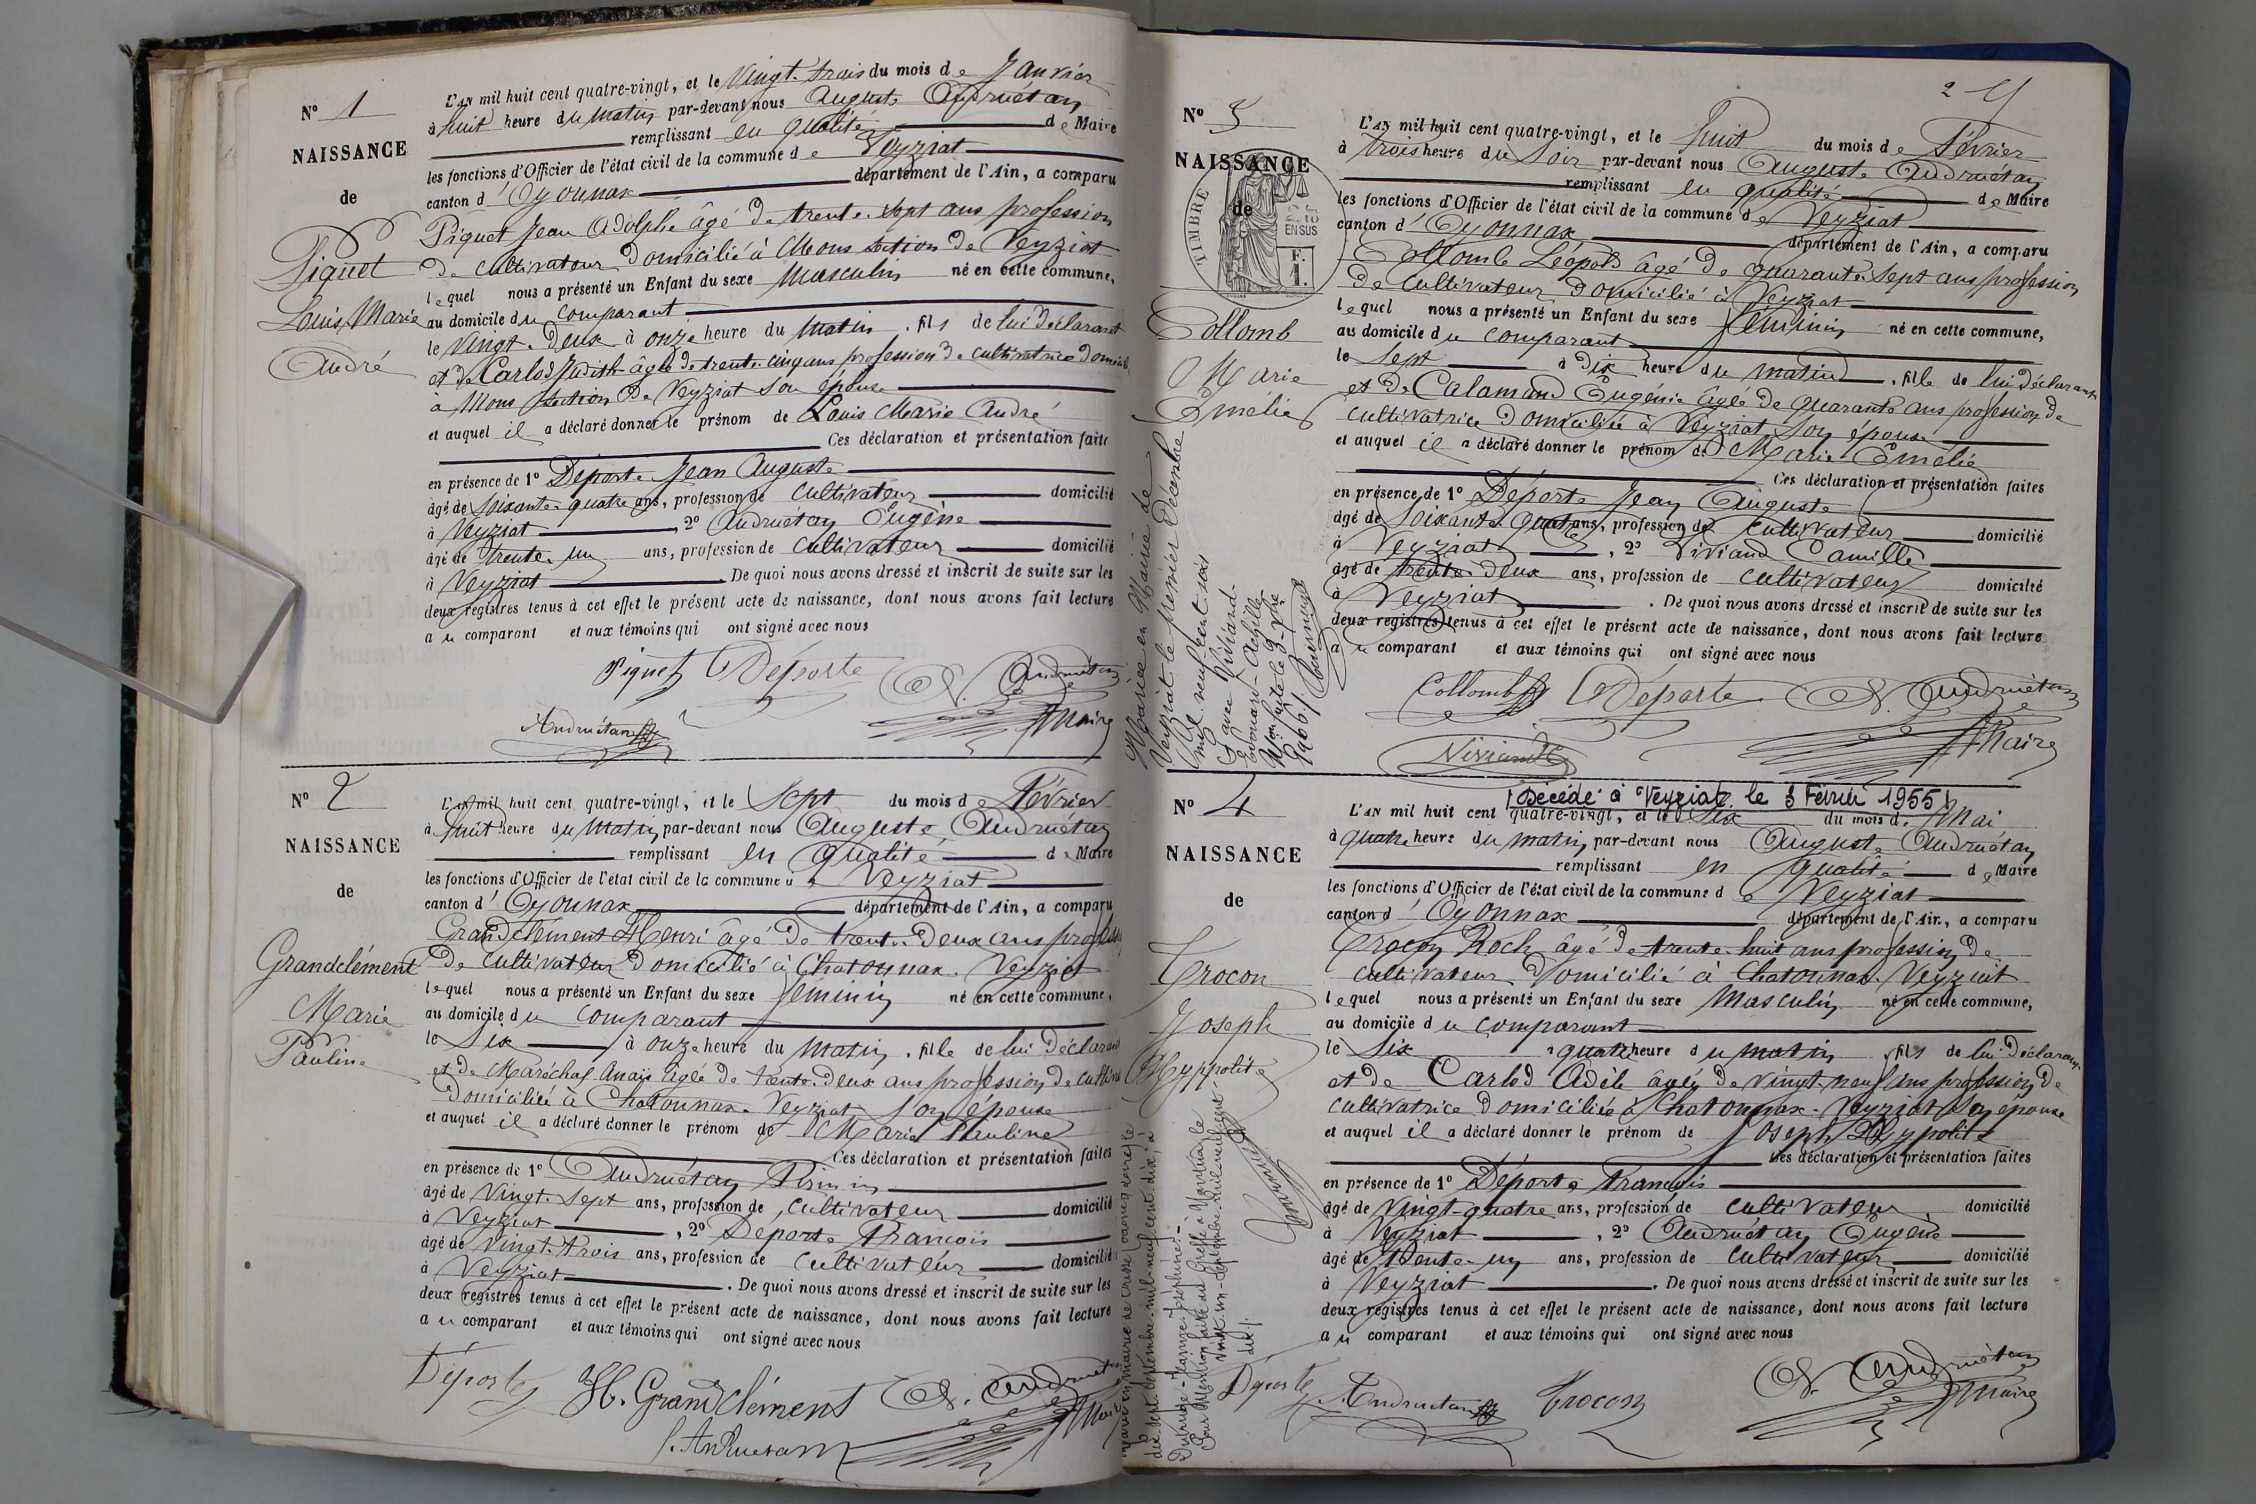 N° 1
NAISSANCE
de
Piquet
Louis Marie
André
L'AN mil huit cent quatre-vingt, et le Vingt-trois du mois de Janvier
à huit heure du matin par-devant nous Auguste Andruétan
remplissant en qualité de Maire
les fonctions d'Officier de l'état civil de la commune de Veyziat
canton d'Oyonnax département de l'Ain, a comparu
Piquet Jean Adolphe âgé de trente-sept ans profession
de cultivateur domicilié à Mons section de Veyziat
lequel nous a présenté un Enfant du sexe Masculin né en cette commune,
au domicile du comparant
le vingt-deux à onze heure du matin, fils de lui déclarant
et de Carlod Judith âgée de trente-cinq ans profession de cultivatrice domicil
à Mons section de Veyziat son épouse
et auquel il a déclaré donner le prénom de Louis Marie André
Ces déclaration et présentation faite
en présence de 1° Déporte Jean Auguste
âgé de soixante-quatre ans, profession de cultivateur domicilié
à Veyziat, 2° Andruétan Eugène
âgé de trente-un ans, profession de cultivateur domicilié
à Veyziat. De quoi nous avons dressé et inscrit de suite sur les
deux registres tenus à cet effet le présent acte de naissance, dont nous avons fait lecture
au comparant et aux témoins qui ont signé avec nous
Piquet Déporte A. Andruétan
Andruétan Maire
N° 2
NAISSANCE
de
Grandclément
Marie
Pauline
L'AN mil huit cent quatre-vingt, et le sept du mois de Février
à huit heure du matin par-devant nous Auguste Andruétan
remplissant en qualité de Maire
les fonctions d'Officier de l'état civil de la commune de Veyziat
canton d'Oyonnax département de l'Ain, a comparu
Grandclément Henri âgé de trente-deux ans profession
de cultivateur domicilié à Chatonnax-Veyziat
lequel nous a présenté un Enfant du sexe féminin né en cette commune,
au domicile du comparant
le six à onze heure du matin, fille de lui déclarant
et de Maréchal Anaïs âgée de trente-deux ans profession de cultiva
Domiciliée à Chatonnax-Veyziat son épouse
et auquel il a déclaré donner le prénom de Marie Pauline
Ces déclaration et présentation faites
en présence de 1° Andruétan Firmin
âgé de vingt-sept ans, profession de cultivateur domicilié
à Veyziat, 2° Déporte François
âgé de vingt-trois ans, profession de cultivateur domicilié
à Veyziat. De quoi nous avons dressé et inscrit de suite sur les
deux registres tenus à cet effet le présent acte de naissance, dont nous avons fait lecture
au comparant et aux témoins qui ont signé avec nous
Déporte H. Grandclément A. Andruétan
f. Andruetan Maire
2
N° 3
NAISSANCE
de
TIMBRE
2/10
EN SUS
F.
1.
Collomb
Marie
Emélie
Mariée en Mairie de
Veyziat le premier Décembre
mil neuf cent six
avec Viviand
Edouard-Achille
Mon faite le 3 Xbre
1906/.
L'AN mil huit cent quatre-vingt, et le huit du mois de Février
à trois heure du soir par-devant nous Auguste Andruétan
remplissant en qualité de Maire
les fonctions d'Officier de l'état civil de la commune de Veyziat
canton d'Oyonnax département de l'Ain, a comparu
Collomb Léopold âgé de quarante-sept ans profession
de cultivateur domicilié à Veyziat
lequel nous a présenté un Enfant du sexe féminin né en cette commune,
au domicile du comparant
le sept à dix heure du matin, fille de lui déclarant
et de Calamand Eugénie âgée de quarante ans profession de
cultivatrice domiciliée à Veyziat son épouse
et auquel il a déclaré donner le prénom de Marie Emélie
Ces déclaration et présentation faites
en présence de 1° Déporte Jean Auguste
âgé de soixante-quatre ans, profession de cultivateur domicilié
à Veyziat, 2° Viviand Camille
âgé de trente-deux ans, profession de cultivateur domicilié
à Veyziat. De quoi nous avons dressé et inscrit de suite sur les
deux registres tenus à cet effet le présent acte de naissance, dont nous avons fait lecture
au comparant et aux témoins qui ont signé avec nous
Collomb Déporte A. Andruétan
Viviand Maire
N° 4
NAISSANCE
de
Crocon
Joseph
Hyppolite
dix-sept septembre mil neuf cent dix, à
Pour Mention faite au Greffe à Nantua le
vingt-un septembre mil neuf cent
dix /.
Décédé à Veyziat le 3 Février 1955
L'AN mil huit cent quatre-vingt, et le six du mois de Mai
à quatre heure du matin par-devant nous Auguste Andruétan
remplissant en qualité de Maire
les fonctions d'Officier de l'état civil de la commune de Veyziat
canton d'Oyonnax département de l'Ain, a comparu
Crocon Roch âgé de trente-huit ans profession de
cultivateur domicilié à Chatonnax-Veyziat
lequel nous a présenté un Enfant du sexe Masculin né en cette commune,
au domicile du comparant
le six à quatre heure du matin, fils de lui déclarant
et de Carlod Adèle âgée de vingt-neuf ans profession de
cultivatrice domiciliée à Chatonnax-Veyziat son épouse
et auquel il a déclaré donner le prénom de Joseph Hyppolite
Ces déclaration et présentation faites
en présence de 1° Déporte François
âgé de vingt-quatre ans, profession de cultivateur domicilié
à Veyziat, 2° Andruétan Eugène
âgé de trente-un ans, profession de cultivateur domicilié
à Veyziat. De quoi nous avons dressé et inscrit de suite sur les
deux registres tenus à cet effet le présent acte de naissance, dont nous avons fait lecture
au comparant et aux témoins qui ont signé avec nous
Déporte Andruétan Crocon A. Andruétan
Maire